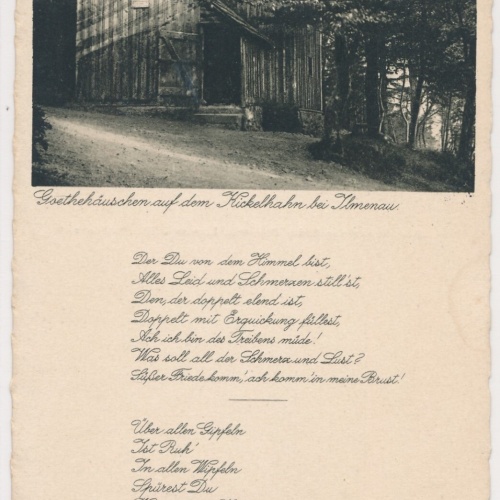 Goethehäuschen auf dem Kickelhahn bei Ilmenau.
Der Du von dem Himmel bist,
Alles Leid und Schmerzen still'st,
Den, der doppelt elend ist,
Doppelt mit Erquickung füllest,
Ach ich bin des Treibens müde!
Was soll all der Schmerz und Lust?
Süßer Friede komm', ach komm' in meine Brust!
Über allen Gipfeln
Ist Ruh'
In allen Wipfeln
Spürest Du